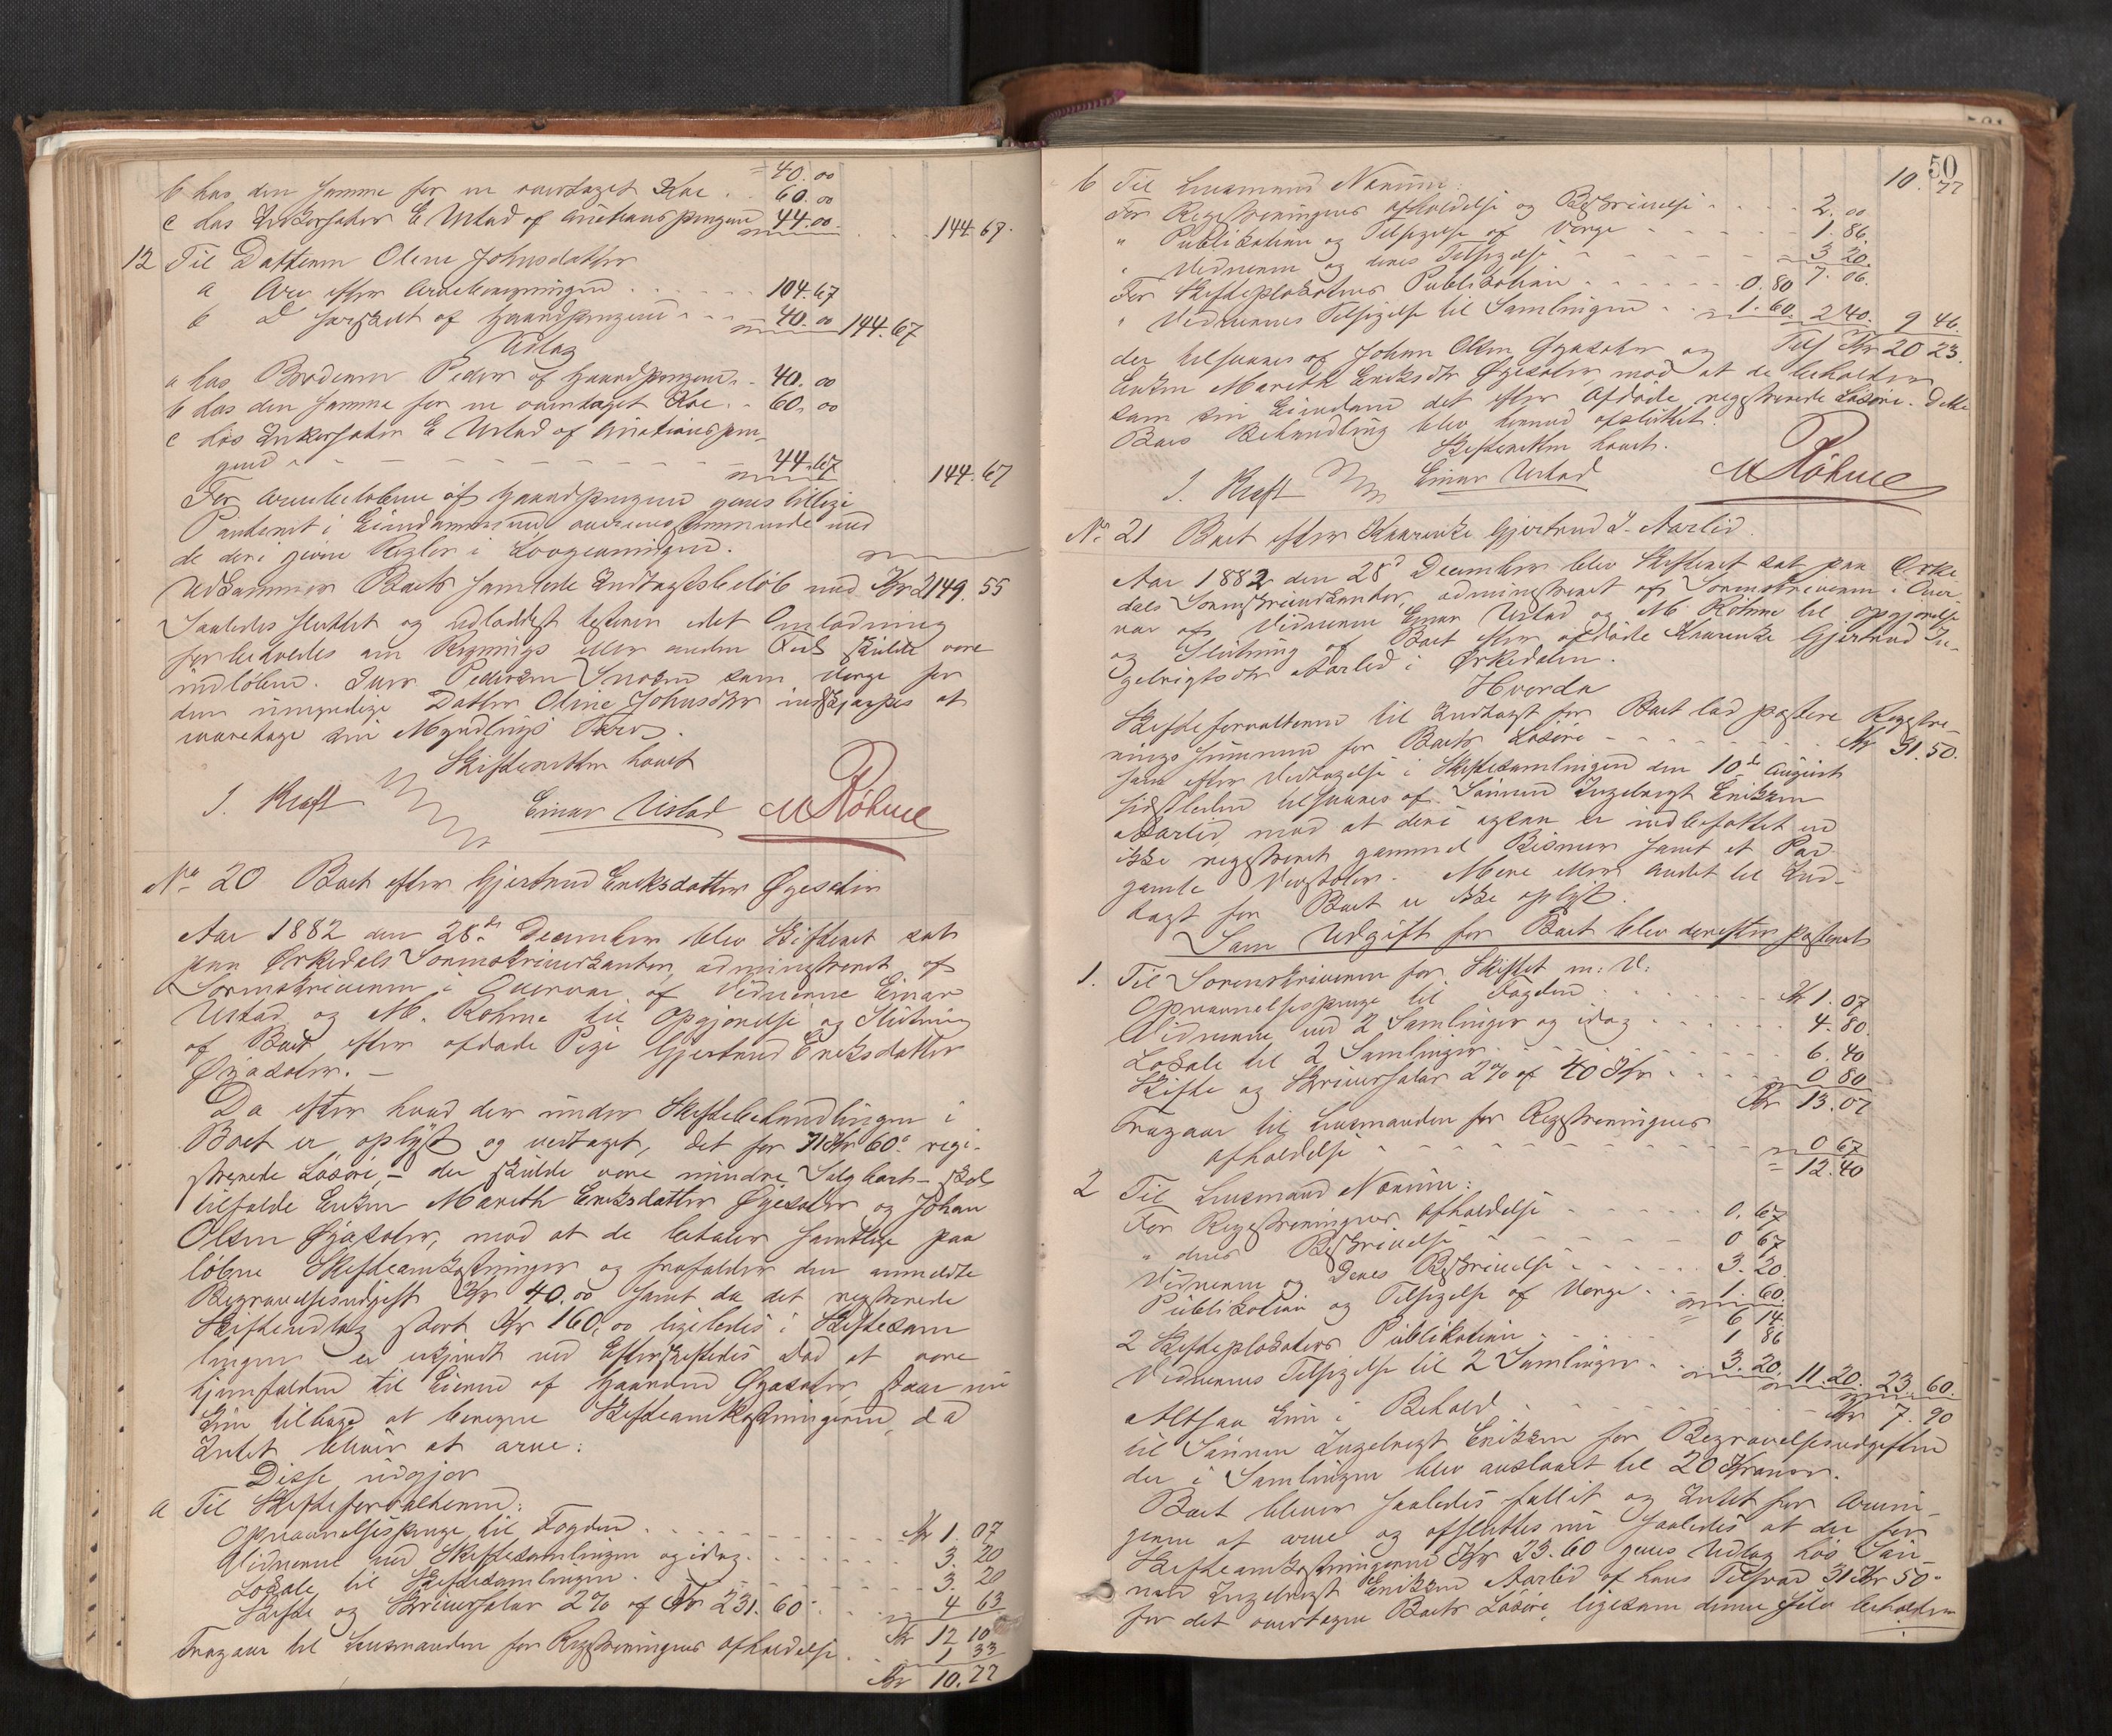 = 40.00
b hos den samme for en overtaget Koe . 60.00
c hos Inkassator E Ustad af Auctionspengene 44.00 . . 144.67.
12 Til Datteren Oline Johnsdatter
a Arv efter Arveberegningen . . . . . 104.67
b D forskudt af Gaardspengene - - - 40.00 144.67
Udlæg
a hos Broderen Peder af Gaardspengene . - 40.00
b hos den samme for en overtaget Koe . - 60.00
c hos Inkassator E Ustad af Auctionspen-
gene - - - - - - - - - 44.67 . 144.67
For Arvebeløbene af Gaardspengene gives tillige
Panteret i Eiendommen overensstemmende med
de deri givne Regler i Lovgivningen.
Udkommer Boets samlede Indtægtsbeløb med Kr 2149.55
Saaledes sluttet og udloddet
forbeholdes om Regnings eller anden Feil skulde være
indløben. Iver Pedersen som Verge for
den umyndige Datter Oline Johnsdtr indskjærpes at
varetage sin Myndlings Tarv.
Skifteretten hævet
J. Kraft Einar Ustad M Röhme
No 20 Boet efter Gjertrud Eriksdatter Øyesolien
Aar 1882 den 28de December blev Skifteret sat
paa Ørkedals Sorenskriverkontor, administreret af
Sorenskriveren i Overvær af Vidnerne Einar
Ustad og M. Röhme til Opgjørelse og Slutning
af Boet efter afdøde Pige Gjertrud Eriksdatter
Øyasolier. -
Da efter hvad der under Skiftebehandlingen i
Boet er oplyst og vedtaget, det for 71 Kr 60 ø regi-
strerede Løsøre, - der skulde være mindre Salgbart - skal
tilfalde Enken Marith Eriksdatter Øyesolier og Johan
Olsen Øyasolier, mod at de betaler samtlige paa
løbne Skifteomkostninger og frafalder den anmeldte
Begravelsesudgift Kr 40.00 samt da det registrerede
Skifteudlæg stort Kr 160,00 ligeledes i Skiftesam
lingen er erkjendt ved Efterskiftedes Død at være
hjemfalden til Eieren af Gaarden Øyasolier, staar nu
kun tilbage at beregne Skifteomkostningerne, da
Intet bliver at arve:
Disse udgjør
a Til Skifteforvalteren:
Opnævnelsespenge til Fogden . . . . . Kr 1.07
Vidnerne ved Skiftesamlingen og idag . . . . . 3.20
Lokale til Skiftesamlingen . . . . . 3.20
Skifte og Skriversalær 2% af Kr 231.60 . . . 4 63
Kr 12 10
Fragaar til Lensmanden for Registreringens afholdelse . 1 33
Kr 10.77
50
10.77
b Til Lensmand Norum:
For Registreringens afholdelse og Beskrivelse . . . . 2.00
" Publikation og Tilsigelse af Verge - - - - - 1.86
" Vidnerne og deres Tilsigelse - - - - - - 3 20
7.06.
For Skifteplakatens Publikation . . . . . 0.80
" Vidnernes Tilsigelse til Samlingen . . 1.60. 2 40. 9 46.
Tils Kr 20 23.
der tilsvares af Johan Olsen Øyasolier og
Enken Marith Eriksdtr Øyesolier, mod at de beholder
som sin Eiendom det efter Afdøde registrerede Løsøre. Dette
Boes Behandling blev hermed afsluttet.
Skifteretten hævet.
J. Kraft Einar Ustad M Röhme
No 21 Boet efter Kaarenke Gjertrud I. Aarlid.
Aar 1882 den 28d December blev Skifteret sat paa Ørke
dals Sorenskriverkontor, administreret af Sorenskriveren i Over
vær af Vidnerne Einar Ustad og M. Röhme til Opgjørelse
og Slutning af Boet efter afdøde Kaarenke Gjertrud In-
gebrigtsdtr Aarlid i Ørkedalen.
Hvorda
Skifteforvalteren til Indtægt for Boet lod postere Registre-
ringssummen for Boets Løsøre - - - - - - Kr 31.50.
som efter Vedtagelse i Skiftesamlingen den 10de August
sidstleden tilsvares af Sønnen Ingebrigt Eriksen
Aarlid, mod at deri ogsaa er indbefattet en
ikke registreret gammel Bismer samt et Par
gamle Vægtlod. Mere eller andet til Ind-
tægt for Boet er ikke oplyst.
Som Udgift for Boet blev derefter posteret
1. Til Sorenskriveren for Skiftet m: V:
Opnævnelsespenge til Fogden . . . . . Kr 1.07
Vidnerne ved 2 Samlinger og idag . . . . . 4.80.
Lokale til 2 Samlinger . . . . . 6.40
Skifte og Skriversalær 2% af 40 Kr . . . . 0 80
Kr 13.07
Fragaar til Lensmanden for Registreringens
afholdelse - - - - - - 0 67
= 12.40
2 Til Lensmand Norum:
For Registreringens afholdelse - - - - - 0.67
" dens Beskrivelse - - - - - 0 67
Vidnerne og deres Beskrivelse - - - - 3.20
Publikation og Tilsigelse af Verge . . 1.60.
= 6 14
2 Skifteplakaters Publikation . . . . 1 86
Vidnernes Tilsigelse til 2 Samlinger . . 3.20. 11.20. 23.60.
Altsaa kun i Behold . . . . . Kr 7.90
til Sønnen Ingebrigt Eriksen for Begravelsesudgiften
der i Samlingen blev anslaaet til 20 Kroner.
Boet bliver saaledes fallit og Intet for Arvin-
gerne at arve og afsluttes nu saaledes at der for
Skifteomkostningerne Kr 23.60 gives Udlæg hos Søn-
nen Ingebrigt Eriksen Aarlid af hans Tilsvar 31 Kr 50 ø
for det overtagne Boets Løsøre, ligesom denne selv beholder